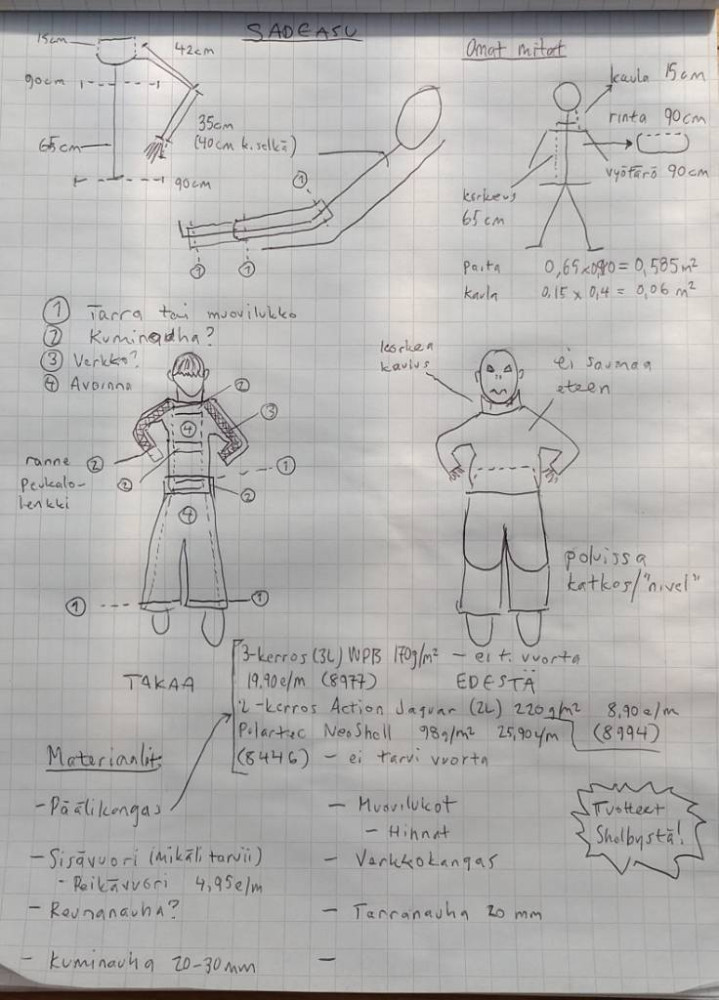 SADEASU
15cm
42cm
90cm
65cm
35cm
(40cm k. selkä)
90cm
1
1
1
Omat mitat
kaula 15cm
rinta 90cm
vyötärö 90cm
korkeus
65cm
Paita 0,65x0,90 = 0,585m²
Kaula 0,15 x 0,4 = 0,06 m²
1 Tarra tai muovilukko
2 Kuminauha?
3 Verkko?
4 Avoinna
2
3
4
ranne 2
peukalo-
lenkki
2
1
2
4
1
1
TAKAA
korkea
kaulus
ei saumaa
eteen
polvissa
katkos/"nivel"
EDESTÄ
3-kerros (3L) WPB 170g/m² – ei t. vuorta
19,90e/m (8977)
2-kerros Action Jaguar (2L) 220g/m² 8,90e/m
(8994)
Polartec NeoShell 98g/m² 25,90e/m
(8446) – ei tarvi vuorta
Materiaalit:
- Päälikangas
- Sisävuori (mikäli tarvii)
- Reikävuori 4,95e/m
- Reunanauha?
- Kuminauha 20-30mm
- Muovilukot
- Hihnat
- Verkkokangas
- Tarranauha 20 mm
-
Tuotteet
Shelbystä!